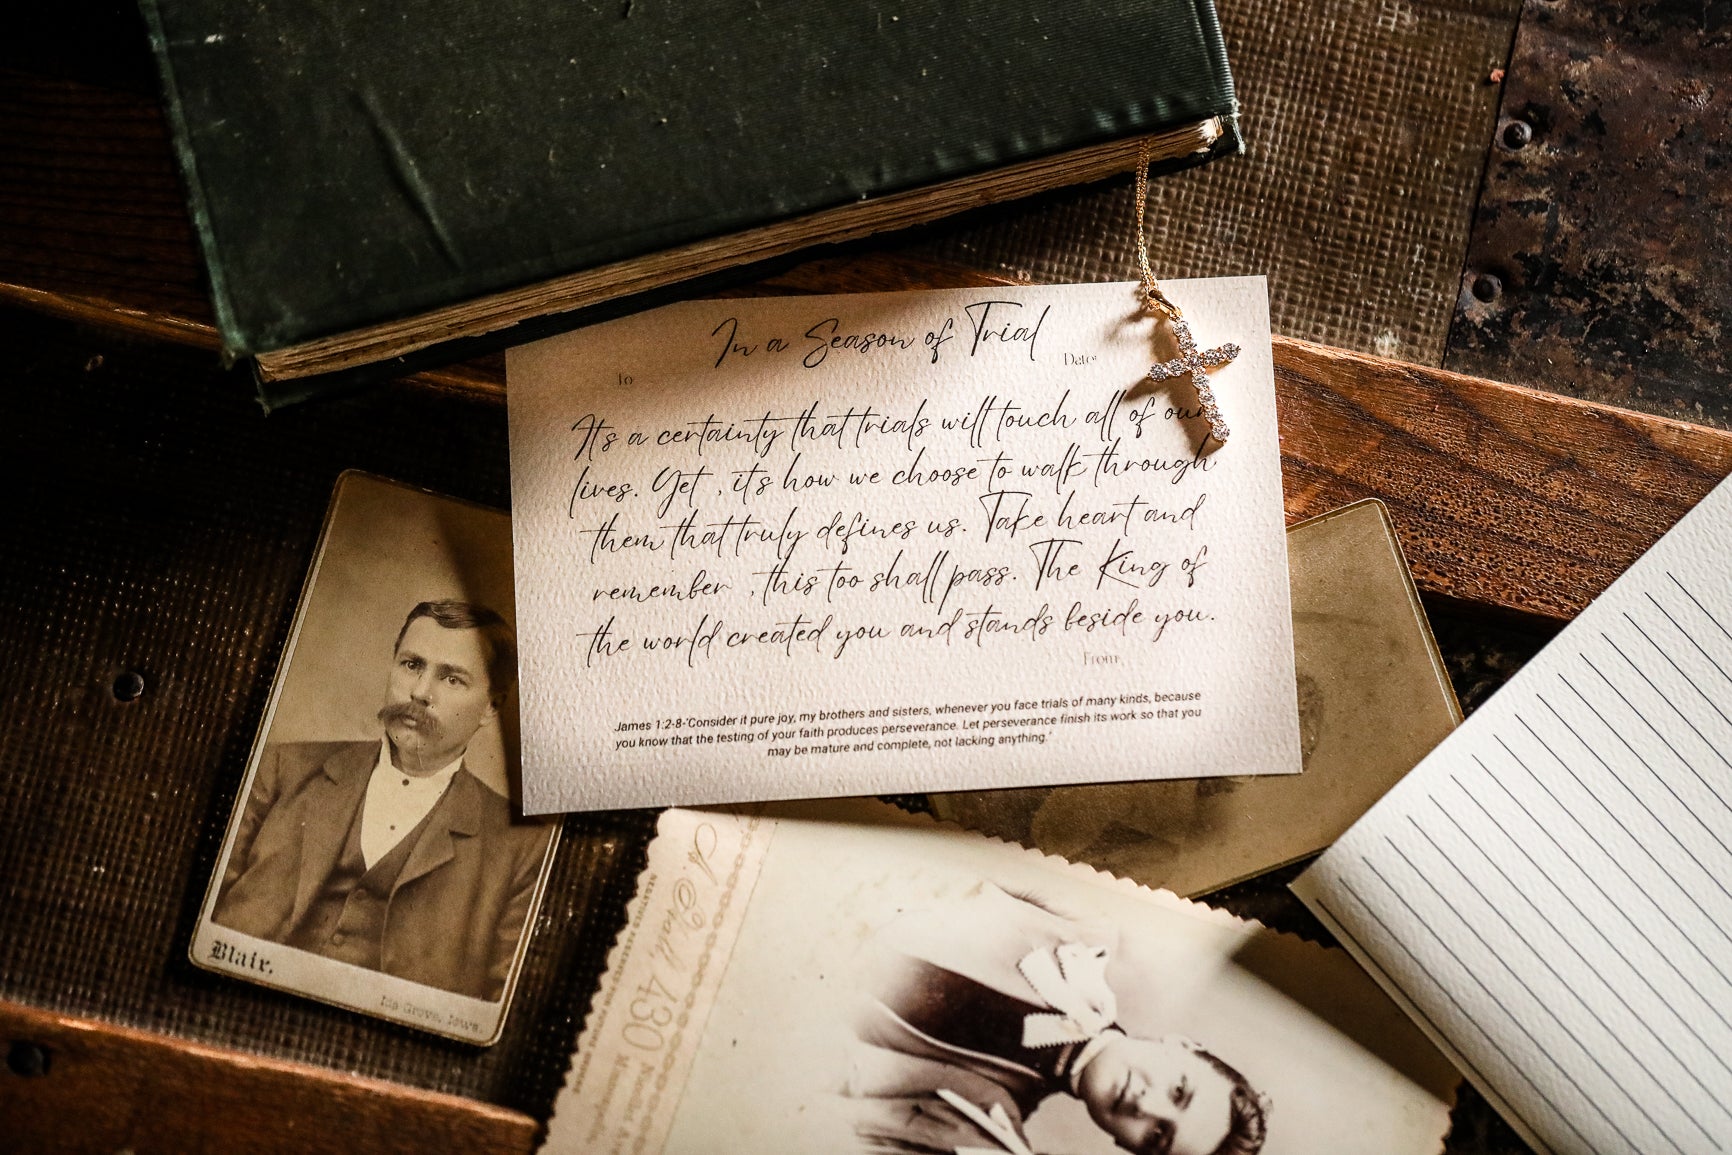 In a Season of Trial
To
Date:
It's a certainty that trials will touch all of our
lives. Yet , it's how we choose to walk through
them that truly defines us. Take heart and
remember , this too shall pass. The King of
the world created you and stands beside you.
From:
James 1:2-8-'Consider it pure joy, my brothers and sisters, whenever you face trials of many kinds, because
you know that the testing of your faith produces perseverance. Let perseverance finish its work so that you
may be mature and complete, not lacking anything.'
Blair.
Ida Grove, Iowa.
430 Nicollet Ave